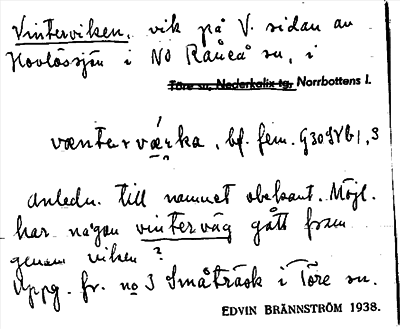 Vinterviken, vik på V. sidan av
Hovlössjön i NO Råneå sn, i
Töre sn, Nederkalix tg, Norrbottens l.
væntervær̨ka, bf. fem. G30SVb1,3
Anledn. till namnet obekant. Möjl.
har någon vinterväg gått fram
genom viken?
Uppg. fr. no 3 Småträsk i Töre sn.
EDVIN BRÄNNSTRÖM 1938.